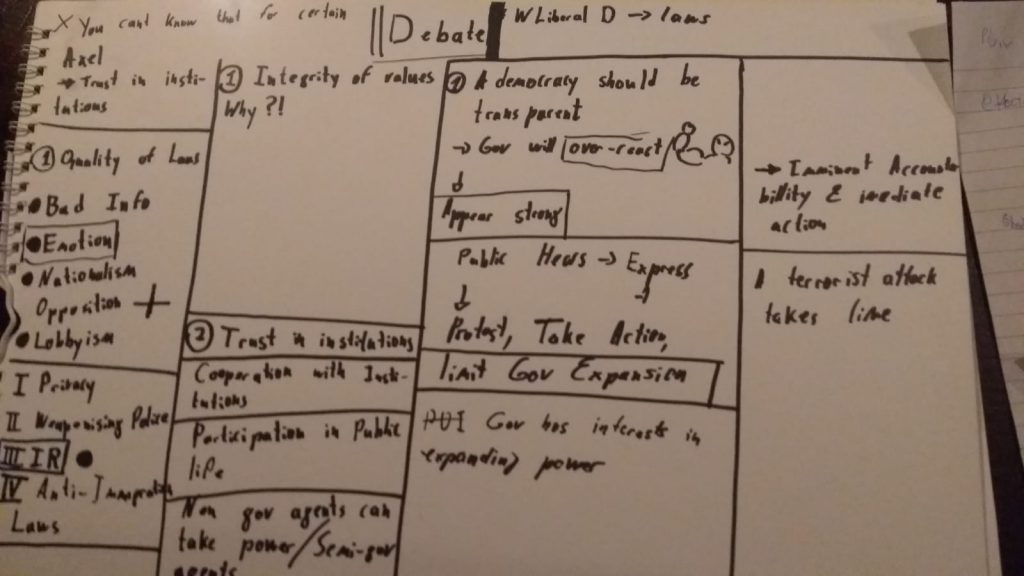 X You cant know that for certain
Axel
→ Trust in insti-
tutions
① Quality of Laws
• Bad Info
• Emotion
• Nationalism
Opposition +
• Lobbyism
I Privacy
II Weaponising Police
III IR •
IV Anti-Immigration
Laws
||Debate
W Liberal D → laws
① Integrity of values
Why?!
② Trust in institutions
Cooperation with Insti-
tutions
Participation in Public
life
Non gov agents can
take power/Semi-gov
agents
① A democracy should be
transparent
→ Gov will over-react/
↓
Appear strong
Public Hears → Express
↓
Protest, Take Action,
limit Gov Expansion
Gov has interests in
expanding power
→ Imminent Accounta
billity & imediate
action
A terrorist attack
takes live